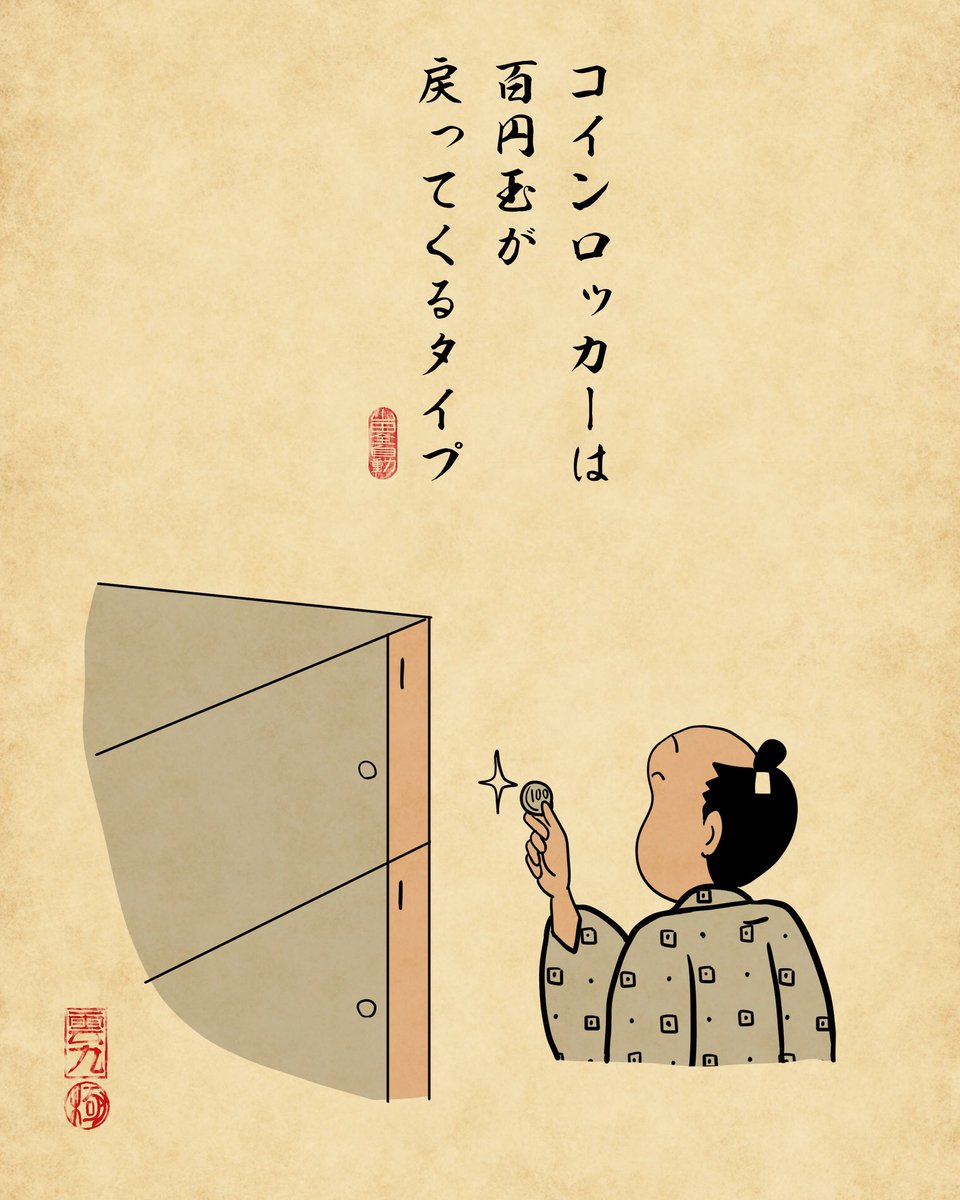 コインロッカーは
百円玉が
戻ってくるタイプ
100